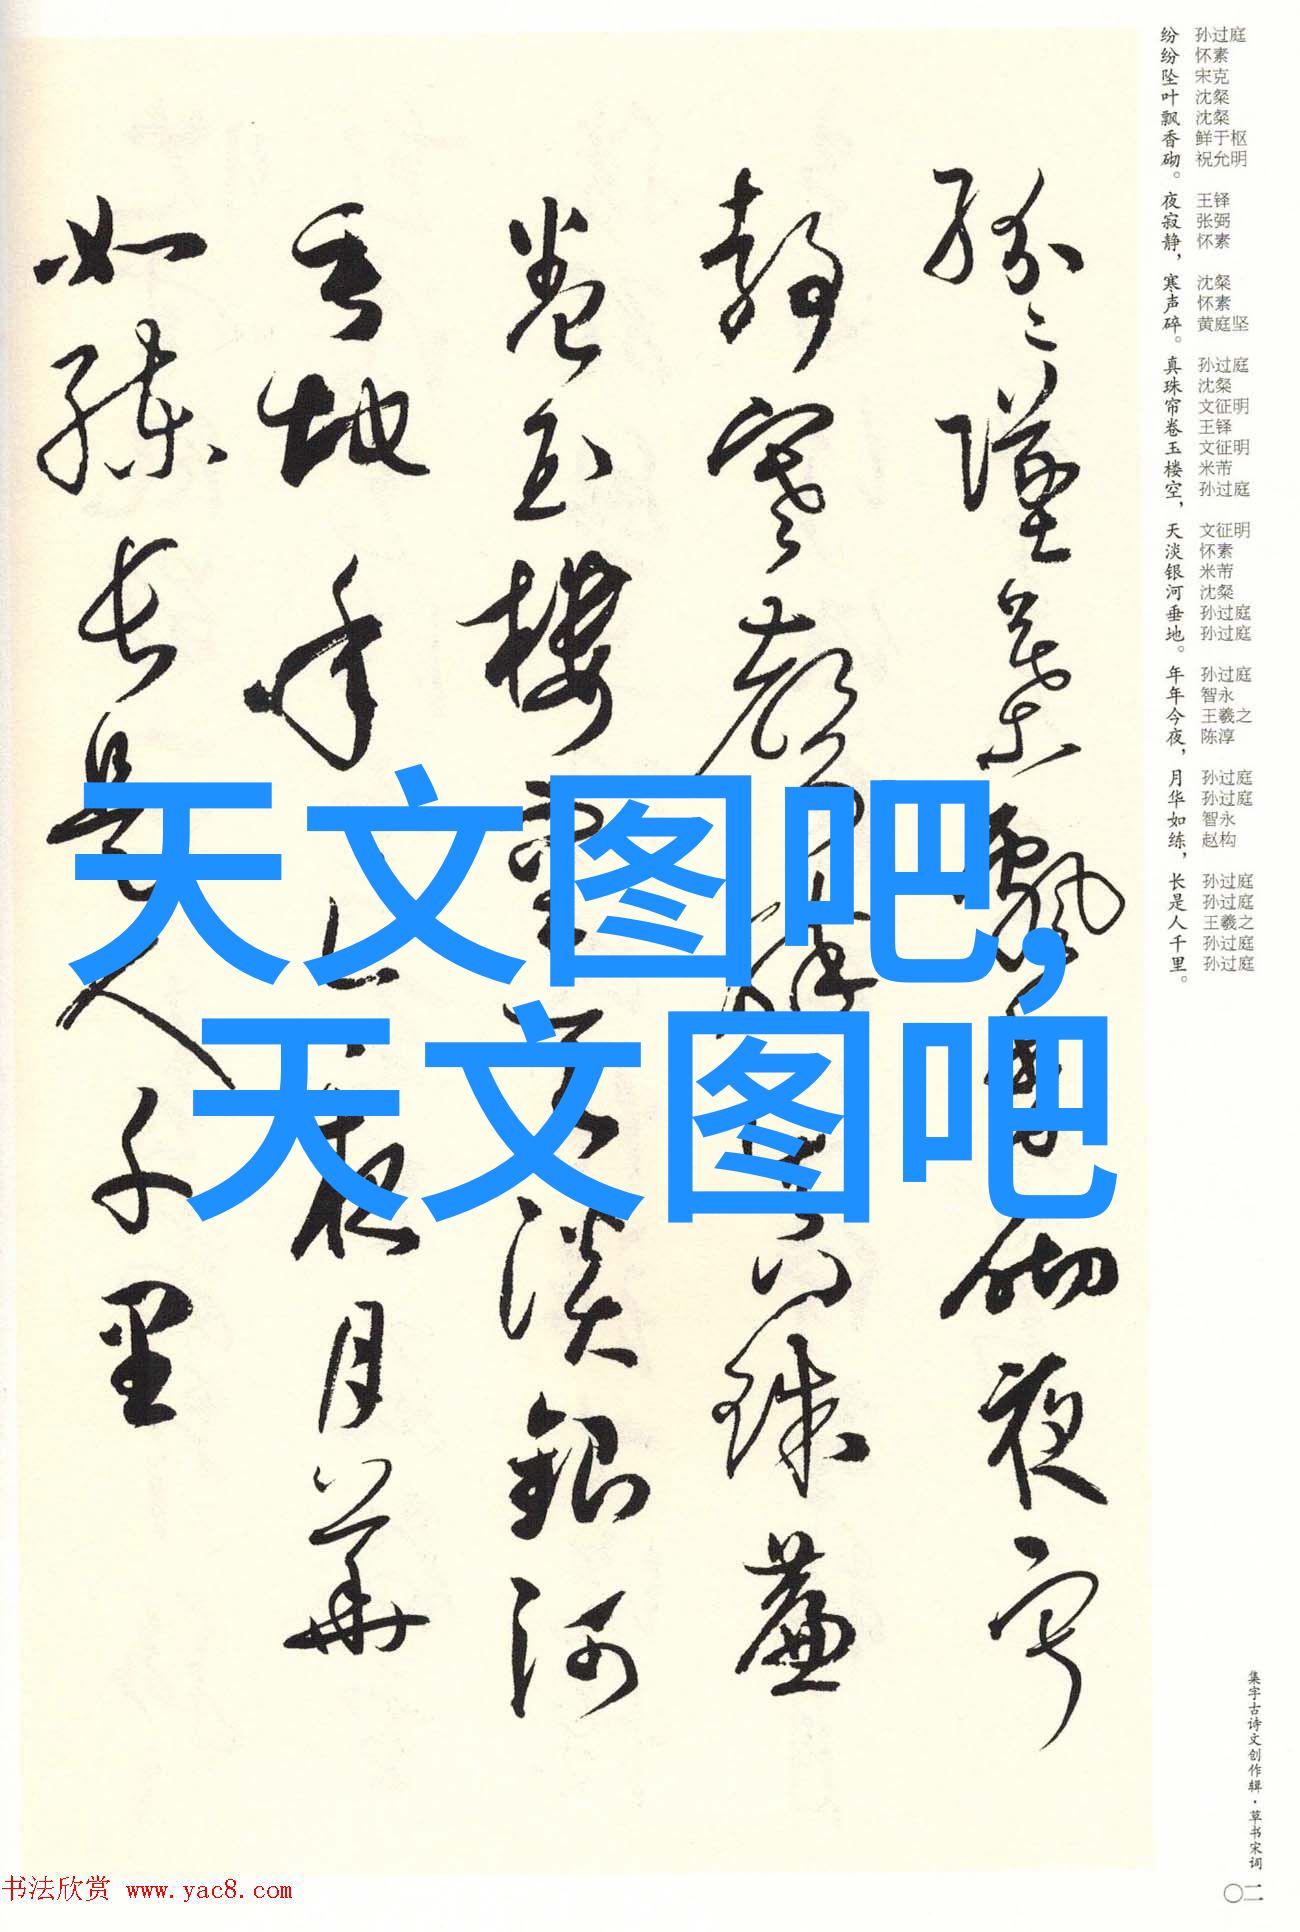 纷纷坠叶飘香砌。夜寂静，寒声碎。真珠帘卷玉楼空，天淡银河垂地。年年今夜，月华如练，长是人千里。
孙过庭 怀素 宋克 沈粲 沈粲 鲜于枢 祝允明 王铎 张弼 怀素 沈粲 怀素 黄庭坚 孙过庭 沈粲 文征明 王铎 文征明 米芾 孙过庭 文征明 怀素 米芾 沈粲 孙过庭 孙过庭 孙过庭 智永 王羲之 陈淳 孙过庭 孙过庭 智永 赵构 孙过庭 孙过庭 王羲之 孙过庭 孙过庭
纷纷坠叶飘香砌夜寂
静寒声碎真珠帘
卷玉楼空天淡银河
垂地年年今夜月华
如练长是人千里
天文图吧,
天文图吧
集字古诗文创作辑·草书宋词
〇二
书法欣赏 www.yac8.com